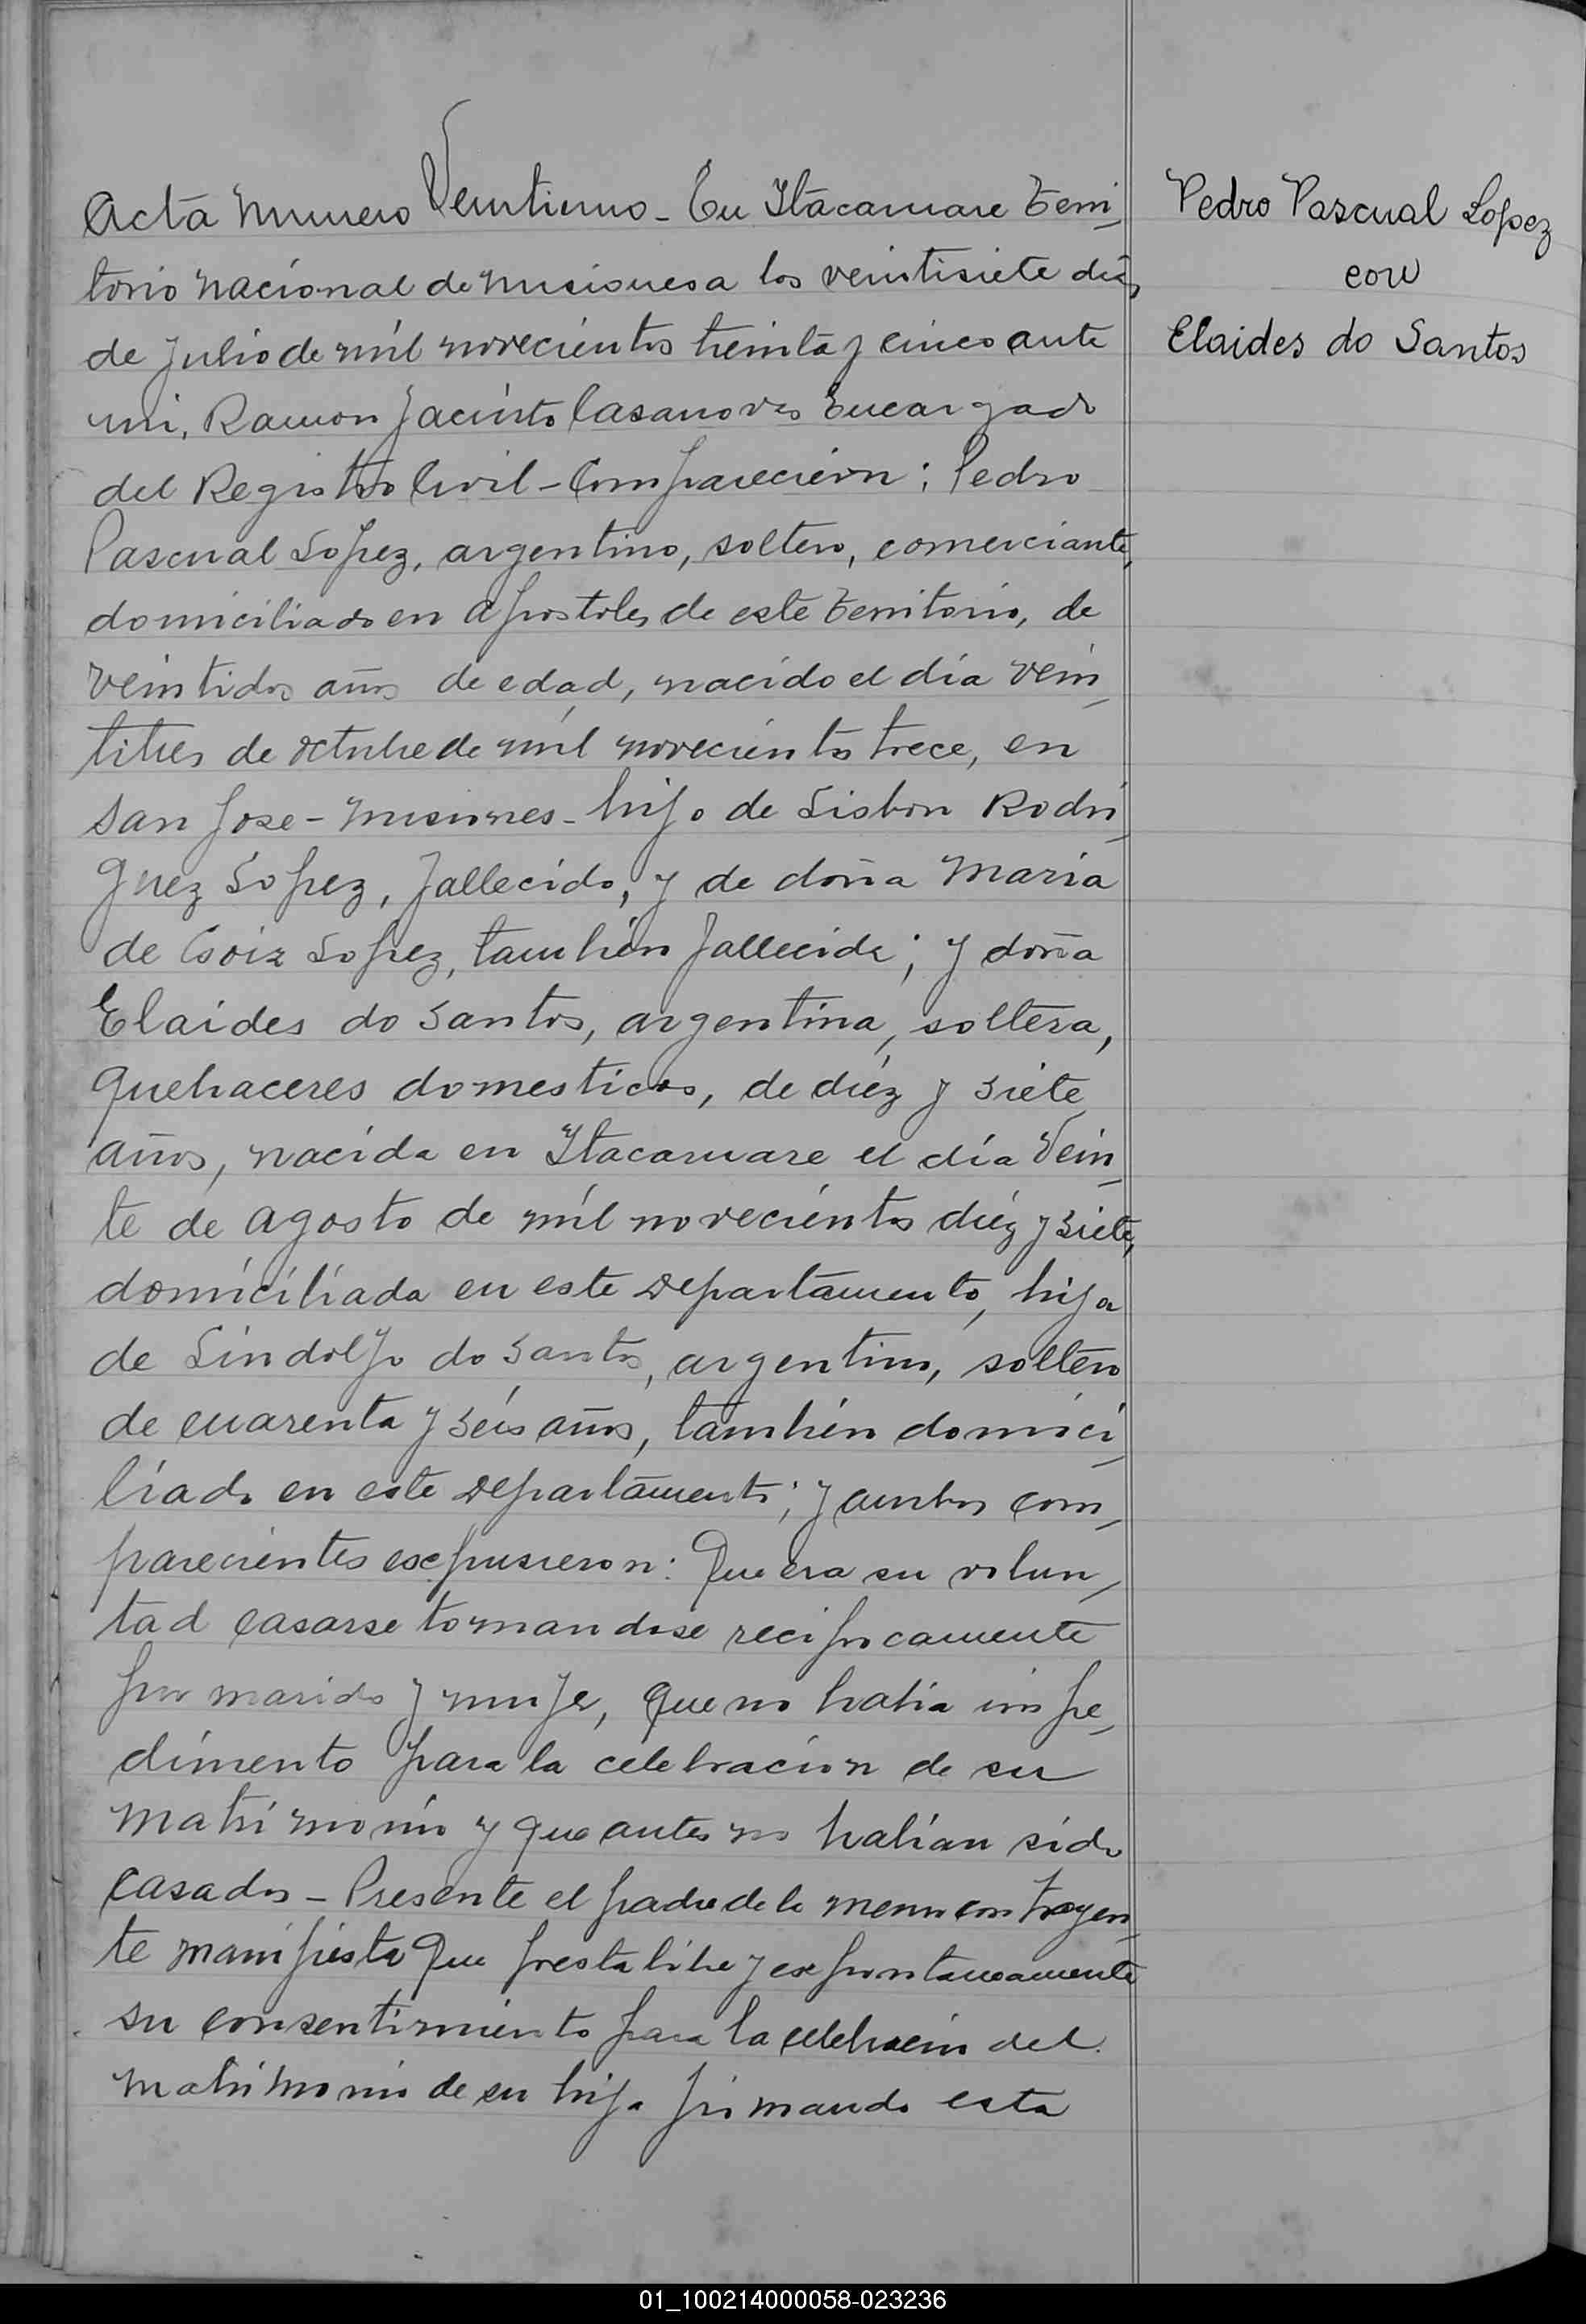 Acta Numero Veintiuno - En Itacaruare Terri-
torio Nacional de Misiones a los veintisiete dias
de Julio de mil novecientos treinta y cinco ante
mi, Ramon Jacinto Casanovas Encargado
del Registro Civil - Comparecieron: Pedro
Pascual Lopez, argentino, soltero, comerciante,
domiciliado en Apostoles de este Territorio, de
veintidos años de edad, nacido el día vein-
titres de octubre de mil novecientos trece, en
San Jose - Misiones - hijo de Lisbon Rodri-
guez Lopez, fallecido, y de doña Maria
de Lopez, tambien fallecida; y doña
Elaides do Santos, argentina, soltera,
quehaceres domesticos, de diéz y siete
años, nacida en Itacaruare el día Vein-
te de agosto de mil novecientos diéz y siete,
domiciliada en este Departamento, hija
de Lindolfo do Santos, argentino, soltero
de cuarenta y seis años, tambien domici-
liado en este Departamento; y ambos com-
parecientes expusieron: Que era su volun-
tad casarse tomandose reciprocamente
por marido y mujer, que no habia impe-
dimento para la celebracion de su
matrimonio y que antes no habian sido
casados - Presente el padre de la menor contrayen-
te manifiesta que presta libre y expontaneamente
su consentimiento para la celebracion del
matrimonio de su hija firmando esta
Pedro Pascual Lopez
con
Elaides do Santos
01_100214000058-023236